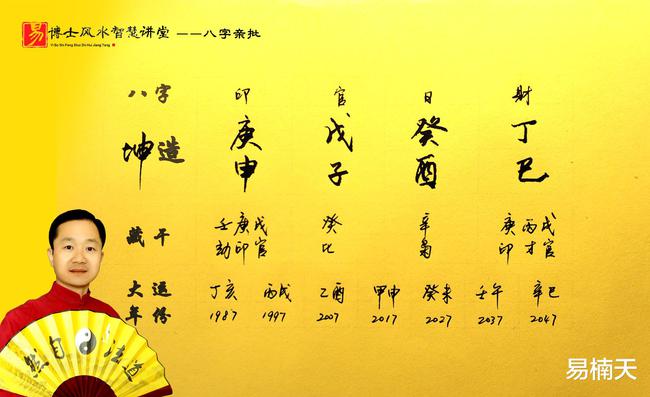 易博士风水智慧讲堂 ——八字亲批
Yi Bo Shi Feng Shui Zhi Hui Jiang Tang
八字 印 官 日 財
坤造 庚申 戊子 癸酉 丁巳
藏干 壬庚戊 癸 辛 庚丙戊
劫印官 比 枭 印才官
大运 丁亥 丙戌 乙酉 甲申 癸未 壬午 辛巳
年份 1987 1997 2007 2017 2027 2037 2047
道法自然
易楠天